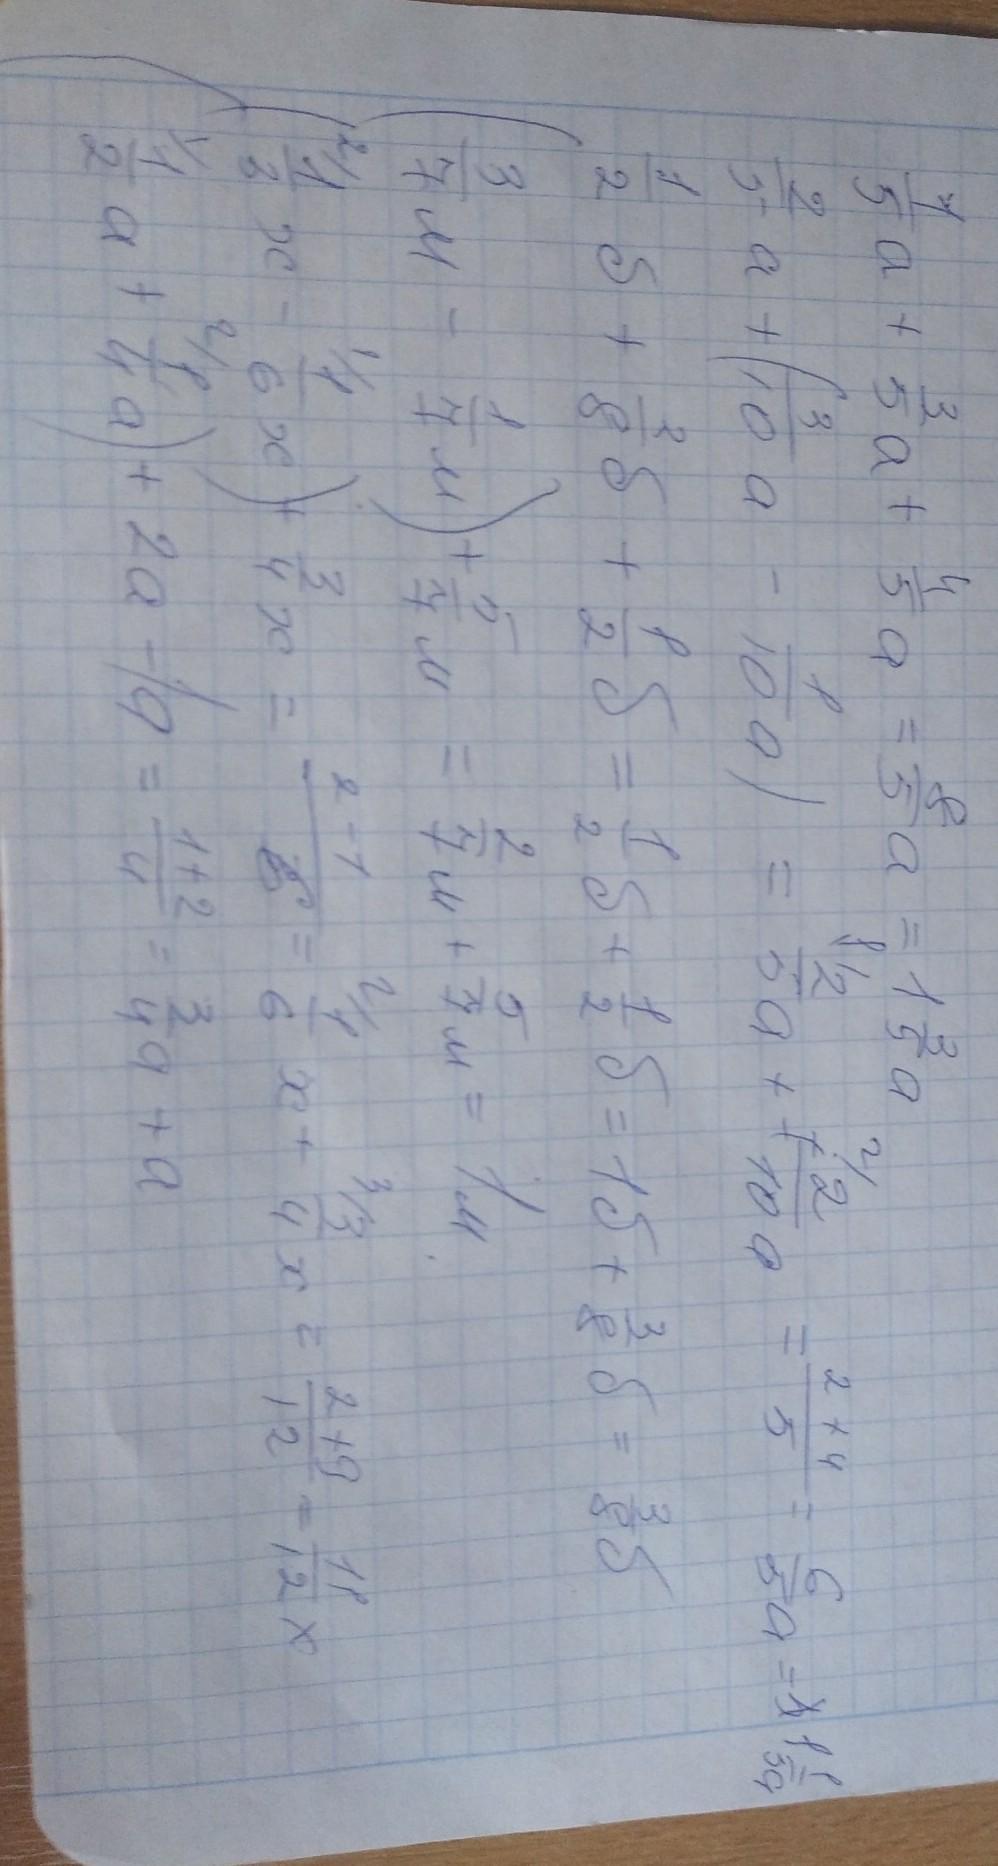 1/5 a + 3/5 a + 4/5 a = 8/5 a = 1 3/5 a
2/5 a + (3/10 a - 1/10 a) = 2/5 a + 2/10 a = 2+4/5 = 6/5 a = 1 1/5 a
1/2 б + 3/8 б + 1/2 б = 1/2 б + 1/2 б = 1б + 3/8 б = 3/8 б
(3/7 и - 1/7 и) + 5/7 и = 2/7 и + 5/7 и = 1и.
(1/3 x - 1/6 x) + 3/4 x = 2-1/6 = 1/6 x + 3/4 x = 2+9/12 = 11/12 x
(1/2 a + 1/4 a) + 2a - 1a = 1+2/4 = 3/4 a + a